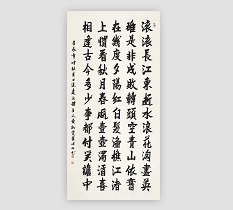 滚滚長江東逝水浪花淘盡英
雄是非成敗轉頭空青山依舊
在幾度夕陽紅白髮漁樵江渚
上慣看秋月春風一壺濁酒喜
相逢古今多少事都付笑談中